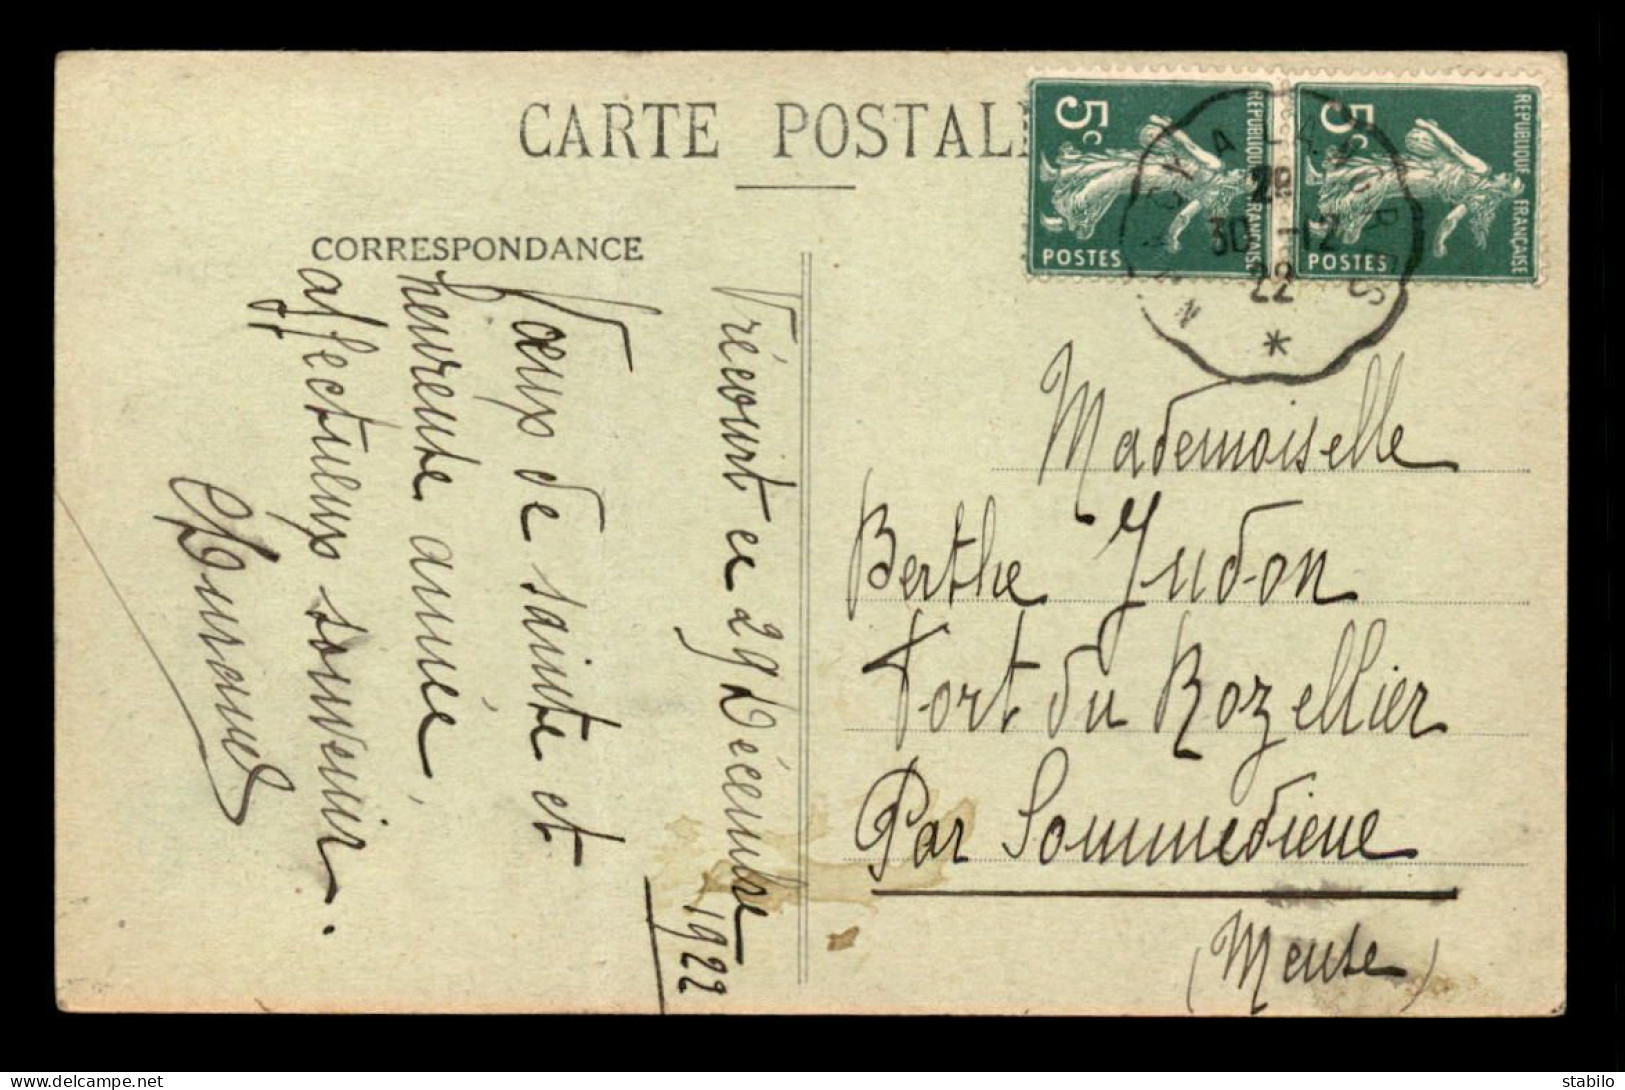 CARTE POSTAL
CORRESPONDANCE
Vrécourt le 29 Décembre 1922
Vœux de sainte et
heureuse année,
affectueux souvenir.
5c
POSTES
REPUBLIQUE FRANÇAISE
5c
POSTES
REPUBLIQUE FRANÇAISE
NANCY A LANGRES
30 -12
22
*
Mademoiselle
Berthe Judon
Fort du Rozellier
Par Sommedieue
(Meuse)
stabilo